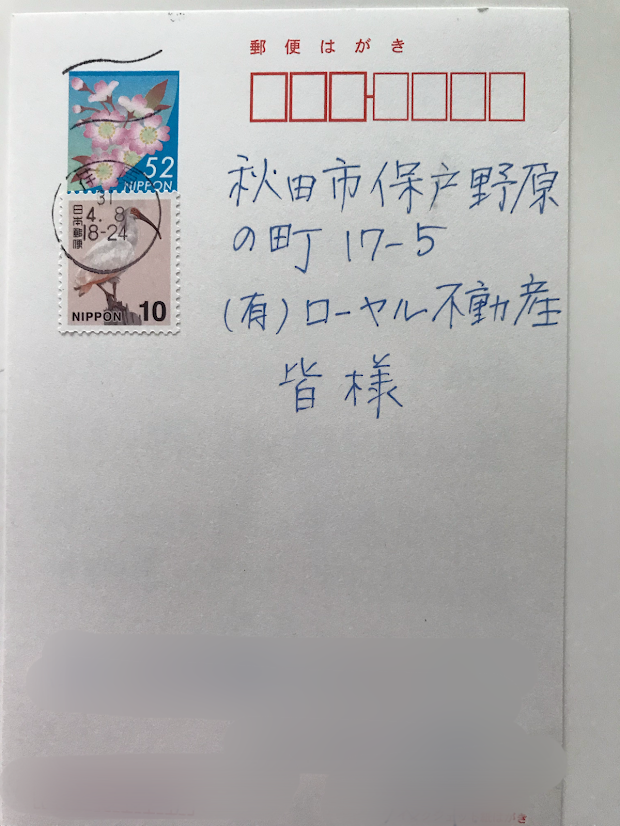 郵便はがき
52
NIPPON
31
4. 8
18-24
日本郵便
NIPPON 10
秋田市保戸野原
の町 17-5
(有)ローヤル不動産
皆様